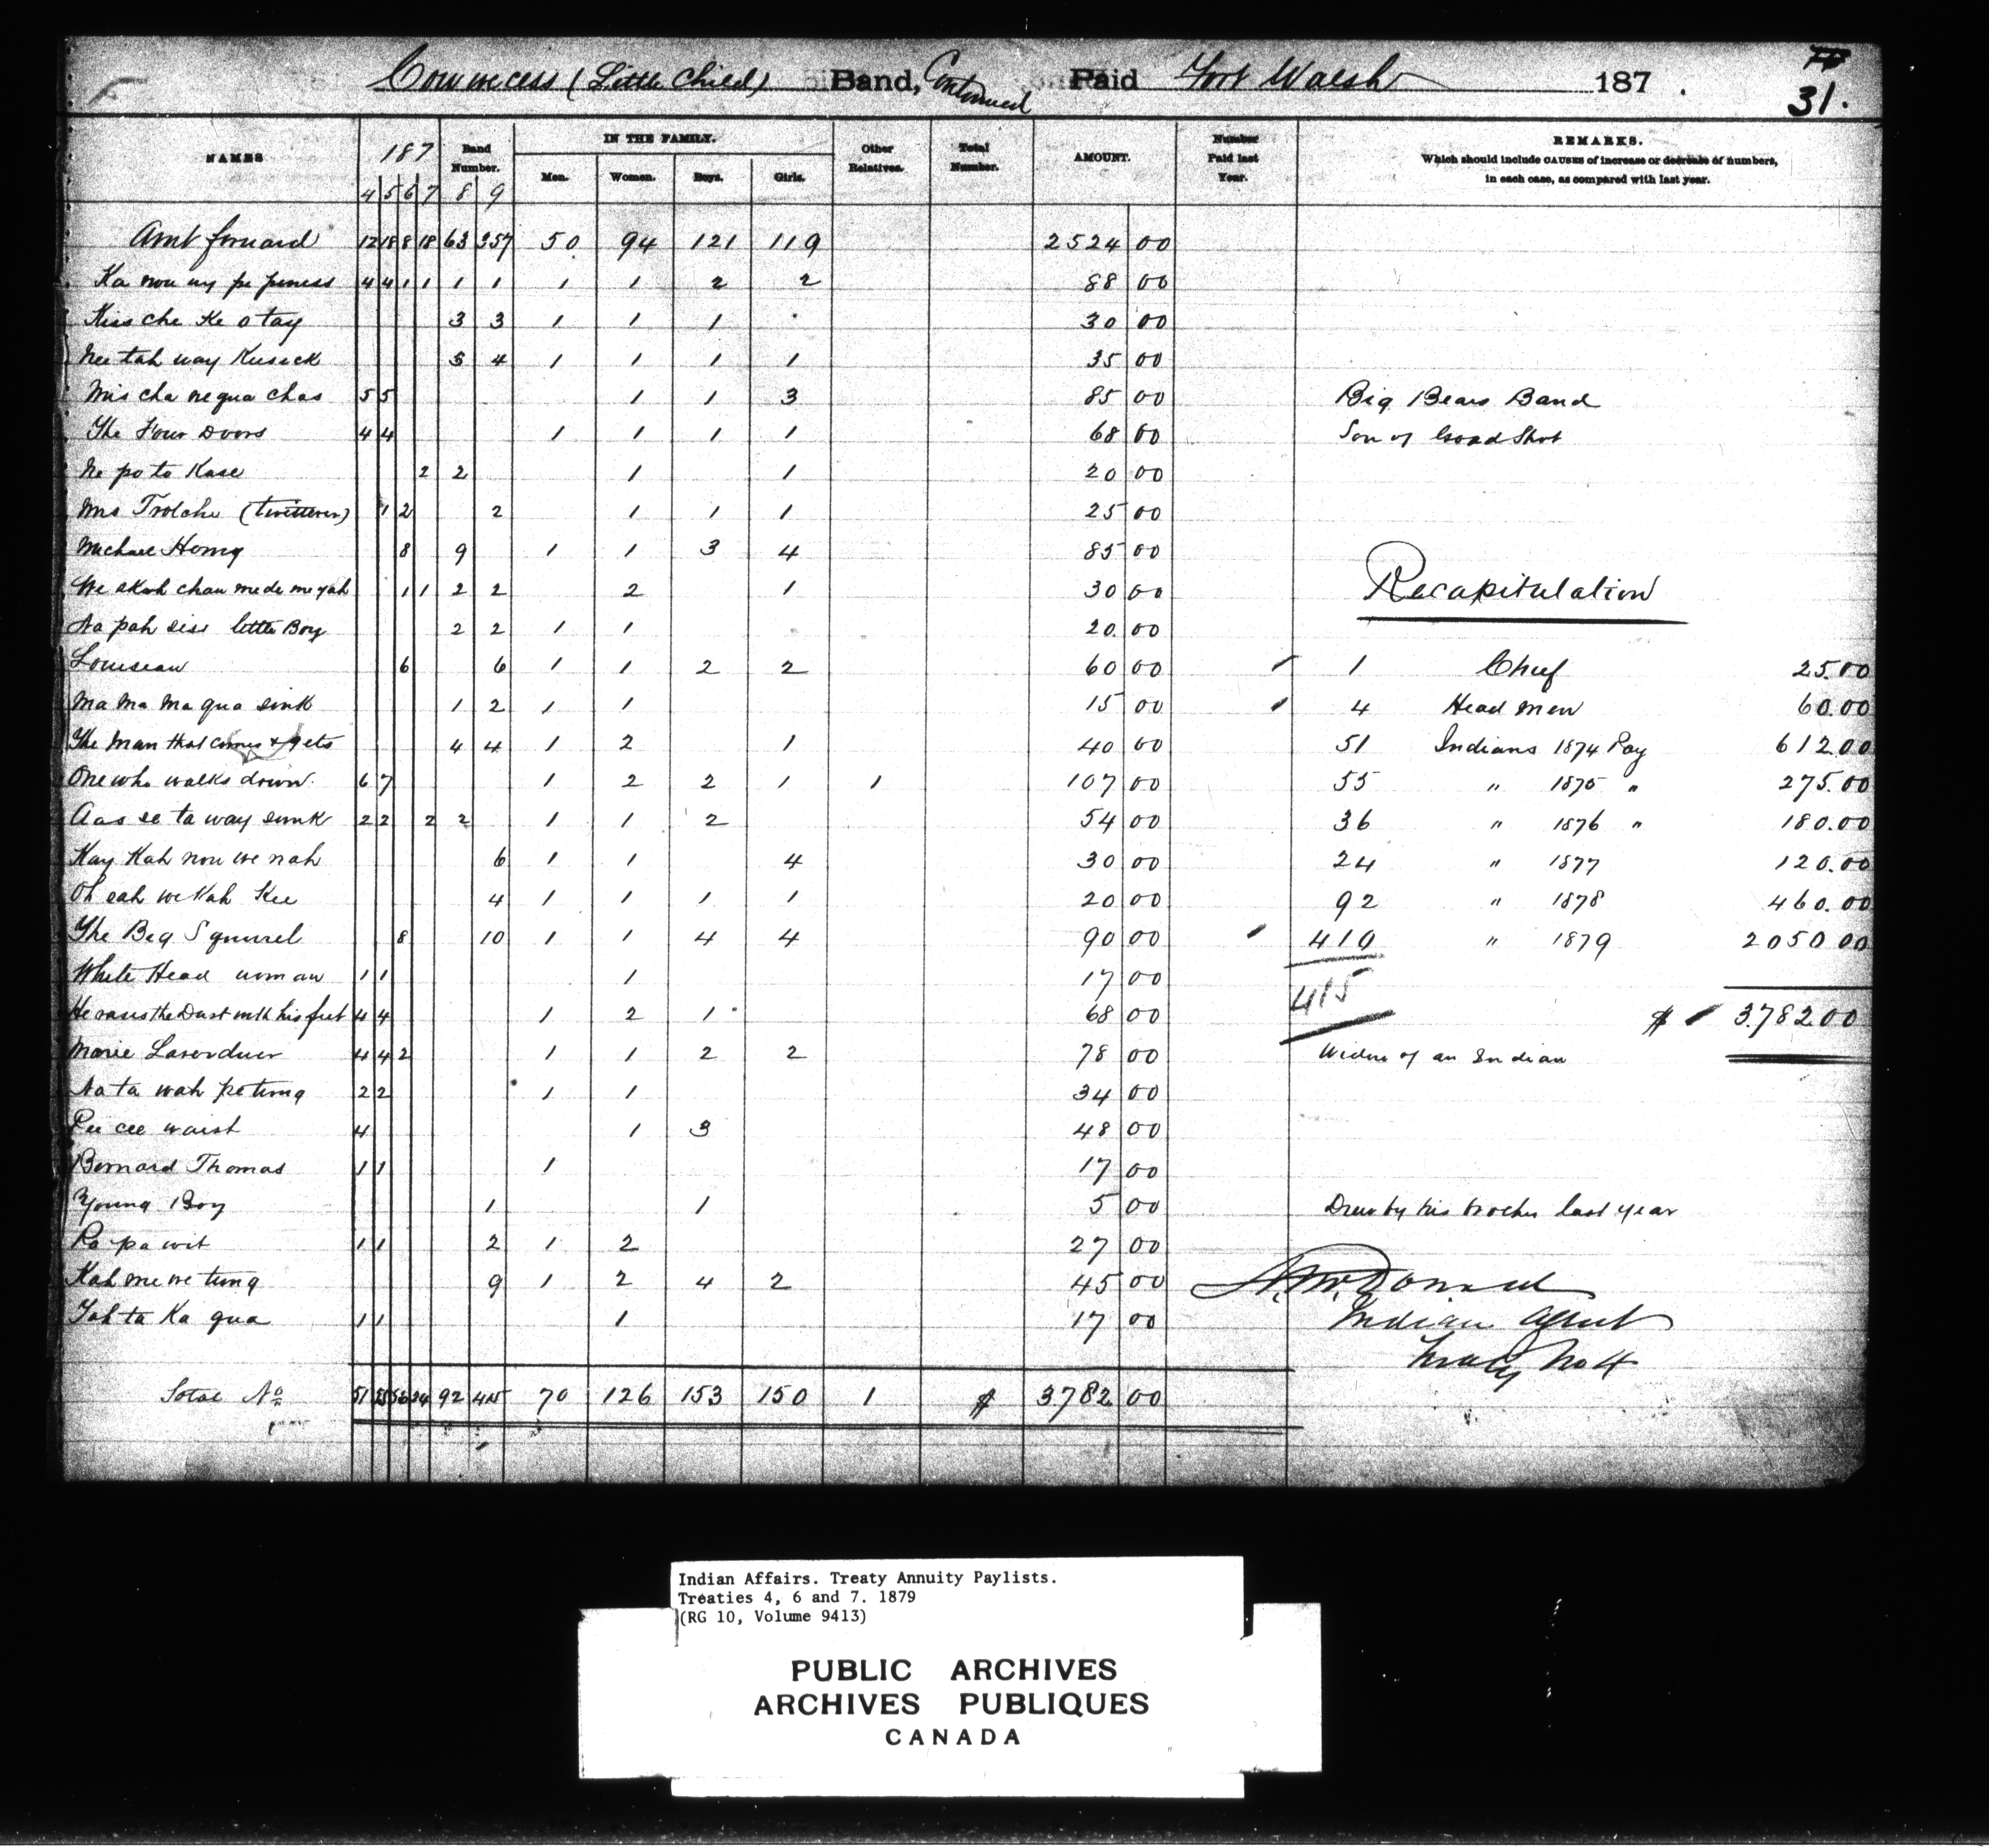 31.
Cowwecess (Little Child) Band, Continued Paid Fort Walsh 187 .
NAMES 187 Band Number. IN THE FAMILY. Other Relatives. Total Number. AMOUNT. Number Paid last Year. REMARKS.
Which should include CAUSES of increase or decrease of numbers,
in each case, as compared with last year.
4 5 6 7 8 9 Men. Women. Boys. Girls.
Amt forward 12 18 8 18 63 357 50 94 121 119 2524 00
Ka nou wy pe peness 4 4 1 1 1 1 1 1 2 2 88 00
Kiss che Ke o tay 3 3 1 1 1 30 00
Nee tah way Kusick 3 4 1 1 1 1 35 00
Mis cha ne qua chas 5 5 1 1 3 85 00 Big Bears Band
The Four Doors 4 4 1 1 1 1 68 00 Son of Good Shot
Ne po to Kase 2 2 1 1 20 00
Mrs Trolche 1 2 2 1 1 1 25 00
Michael Homy 8 9 1 1 3 4 85 00
We skoh chau me de me yah 1 1 2 2 2 1 30 00
Na pah sis little Boy 2 2 1 1 20 00
Louiseau 6 6 1 1 2 2 60 00
Ma Ma Ma qua sink 1 2 1 1 15 00
The Man that comes & gets 4 4 1 2 1 40 00
One who walks down. 6 7 1 2 2 1 1 107 00
Aas se ta way simk 2 2 2 2 1 1 2 54 00
Kay Kah nou we nah 6 1 1 4 30 00
Oh sah we Kah Kee 4 1 1 1 1 20 00
The Big Squirrel 8 10 1 1 4 4 90 00
White Head woman 1 1 1 17 00
He raises the Dust with his feet 4 4 1 2 1 68 00
Marie Laverduer 4 4 2 1 1 2 2 78 00 Widow of an Indian
Na ta wah petung 2 2 1 1 34 00
Pee cee waist 4 1 3 48 00
Bernard Thomas 1 1 1 17 00
Young Boy 1 1 5 00 Drew by his brother last year
Pa pa wit 1 1 2 1 2 27 00
Kah me we tung 9 1 2 4 2 45 00
Tah ta Ka qua 1 1 1 17 00
Total No 51 55 36 24 92 415 70 126 153 150 1 $ 3782 00
Recapitulation
1 Chief 25.00
4 Head men 60.00
51 Indians 1874 Pay 612.00
55 " 1875 " 275.00
36 " 1876 " 180.00
24 " 1877 120.00
92 " 1878 460.00
410 " 1879 2050.00
415
$ 3782.00
A. McDonald
Indian Agent
Treaty No 4
Indian Affairs. Treaty Annuity Paylists.
Treaties 4, 6 and 7. 1879
(RG 10, Volume 9413)
PUBLIC ARCHIVES
ARCHIVES PUBLIQUES
CANADA